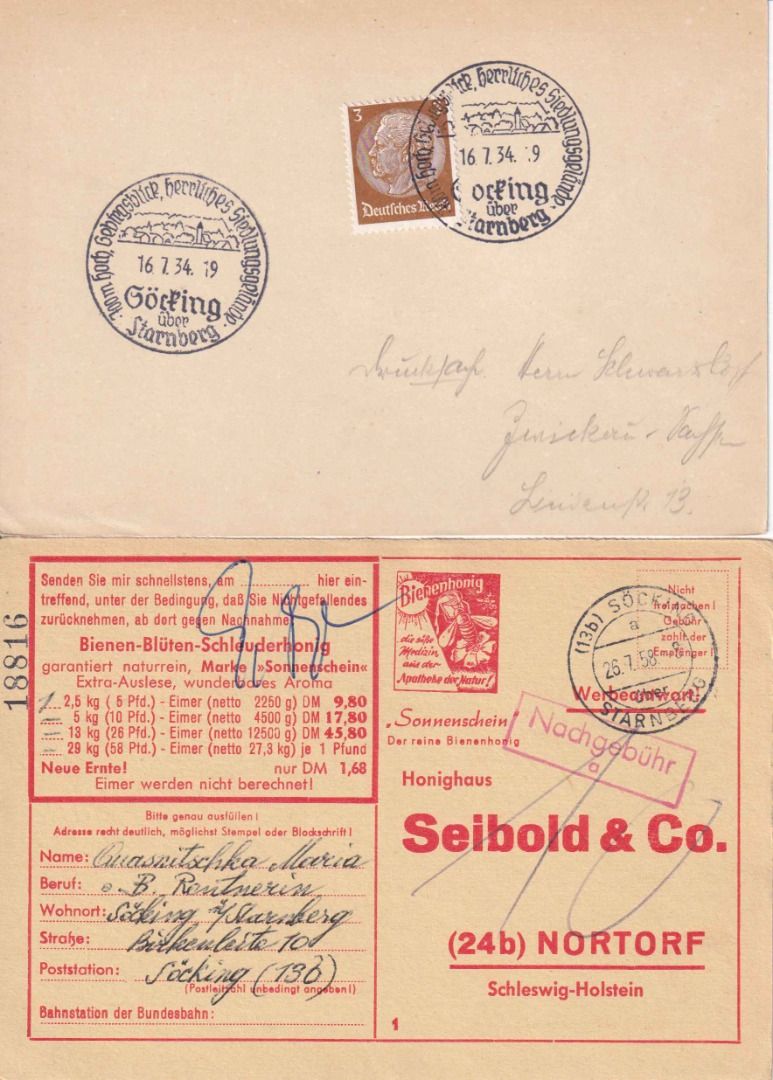 3
Deutsches Reich
700m hoch, Gebirgsblick, herrliches Siedlungsgelände.
16.7.34.19
Göcking
über
Starnberg
700m hoch, Gebirgsblick, herrliches Siedlungsgelände.
16.7.34.19
Göcking
über
Starnberg
Drucksach. Herrn Schwarzkopf
Zwickau - Sachsen
Lindenstr. 13.
18816
Senden Sie mir schnellstens, am hier ein-
treffend, unter der Bedingung, daß Sie Nichtgefallendes
zurücknehmen, ab dort gegen Nachnahme:
Bienen-Blüten-Schleuderhonig
garantiert naturrein, Marke »Sonnenschein«
Extra-Auslese, wunderbares Aroma
1 2,5 kg ( 5 Pfd.) - Eimer (netto 2250 g) DM 9,80
5 kg (10 Pfd.) - Eimer (netto 4500 g) DM 17,80
13 kg (26 Pfd.) - Eimer (netto 12500 g) DM 45,80
29 kg (58 Pfd.) - Eimer (netto 27,3 kg) je 1 Pfund
Neue Ernte! nur DM 1,68
Eimer werden nicht berechnet!
Bitte genau ausfüllen!
Adresse recht deutlich, möglichst Stempel oder Blockschrift!
Name: Quasnitschka Maria
Beruf: Rentnerin
Wohnort: Söcking b/Starnberg
Straße: Birkenleite 10
Poststation: Söcking (13b)
(Postleitzahl unbedingt angeben!)
Bahnstation der Bundesbahn:
Bienenhonig
die süße
Medizin
aus der
Apotheke der Natur!
„Sonnenschein"
Der reine Bienenhonig
Nicht
freimachen!
Gebühr
zahlt der
Empfänger!
(13b) SÖCKING
a
26.7.58
über
STARNBERG
Werbeantwort!
Nachgebühr
a
Honighaus
Seibold & Co.
(24b) NORTORF
Schleswig-Holstein
1